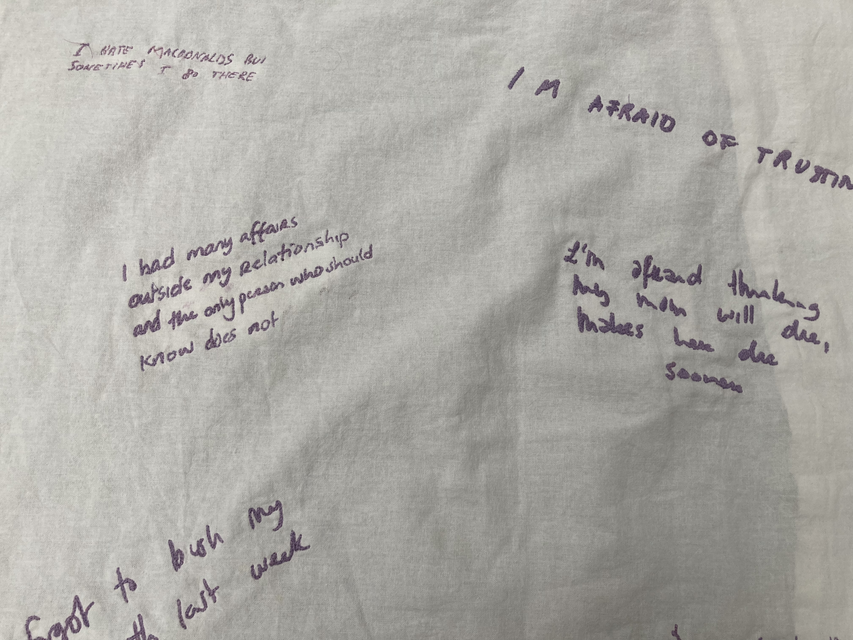 I HATE MACDONALDS BUT
SOMETIMES I GO THERE
I'M AFRAID OF
I had many affairs
outside my relationship
and the only person who should
know does not
I'm afraid thinking
my mom will die,
makes her die
sooner
to bush my
last week